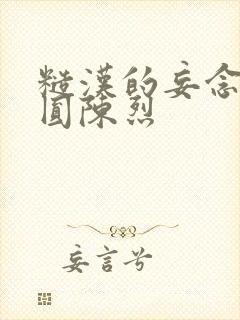 糙漢的妄念
圓陳烈
妄言兮